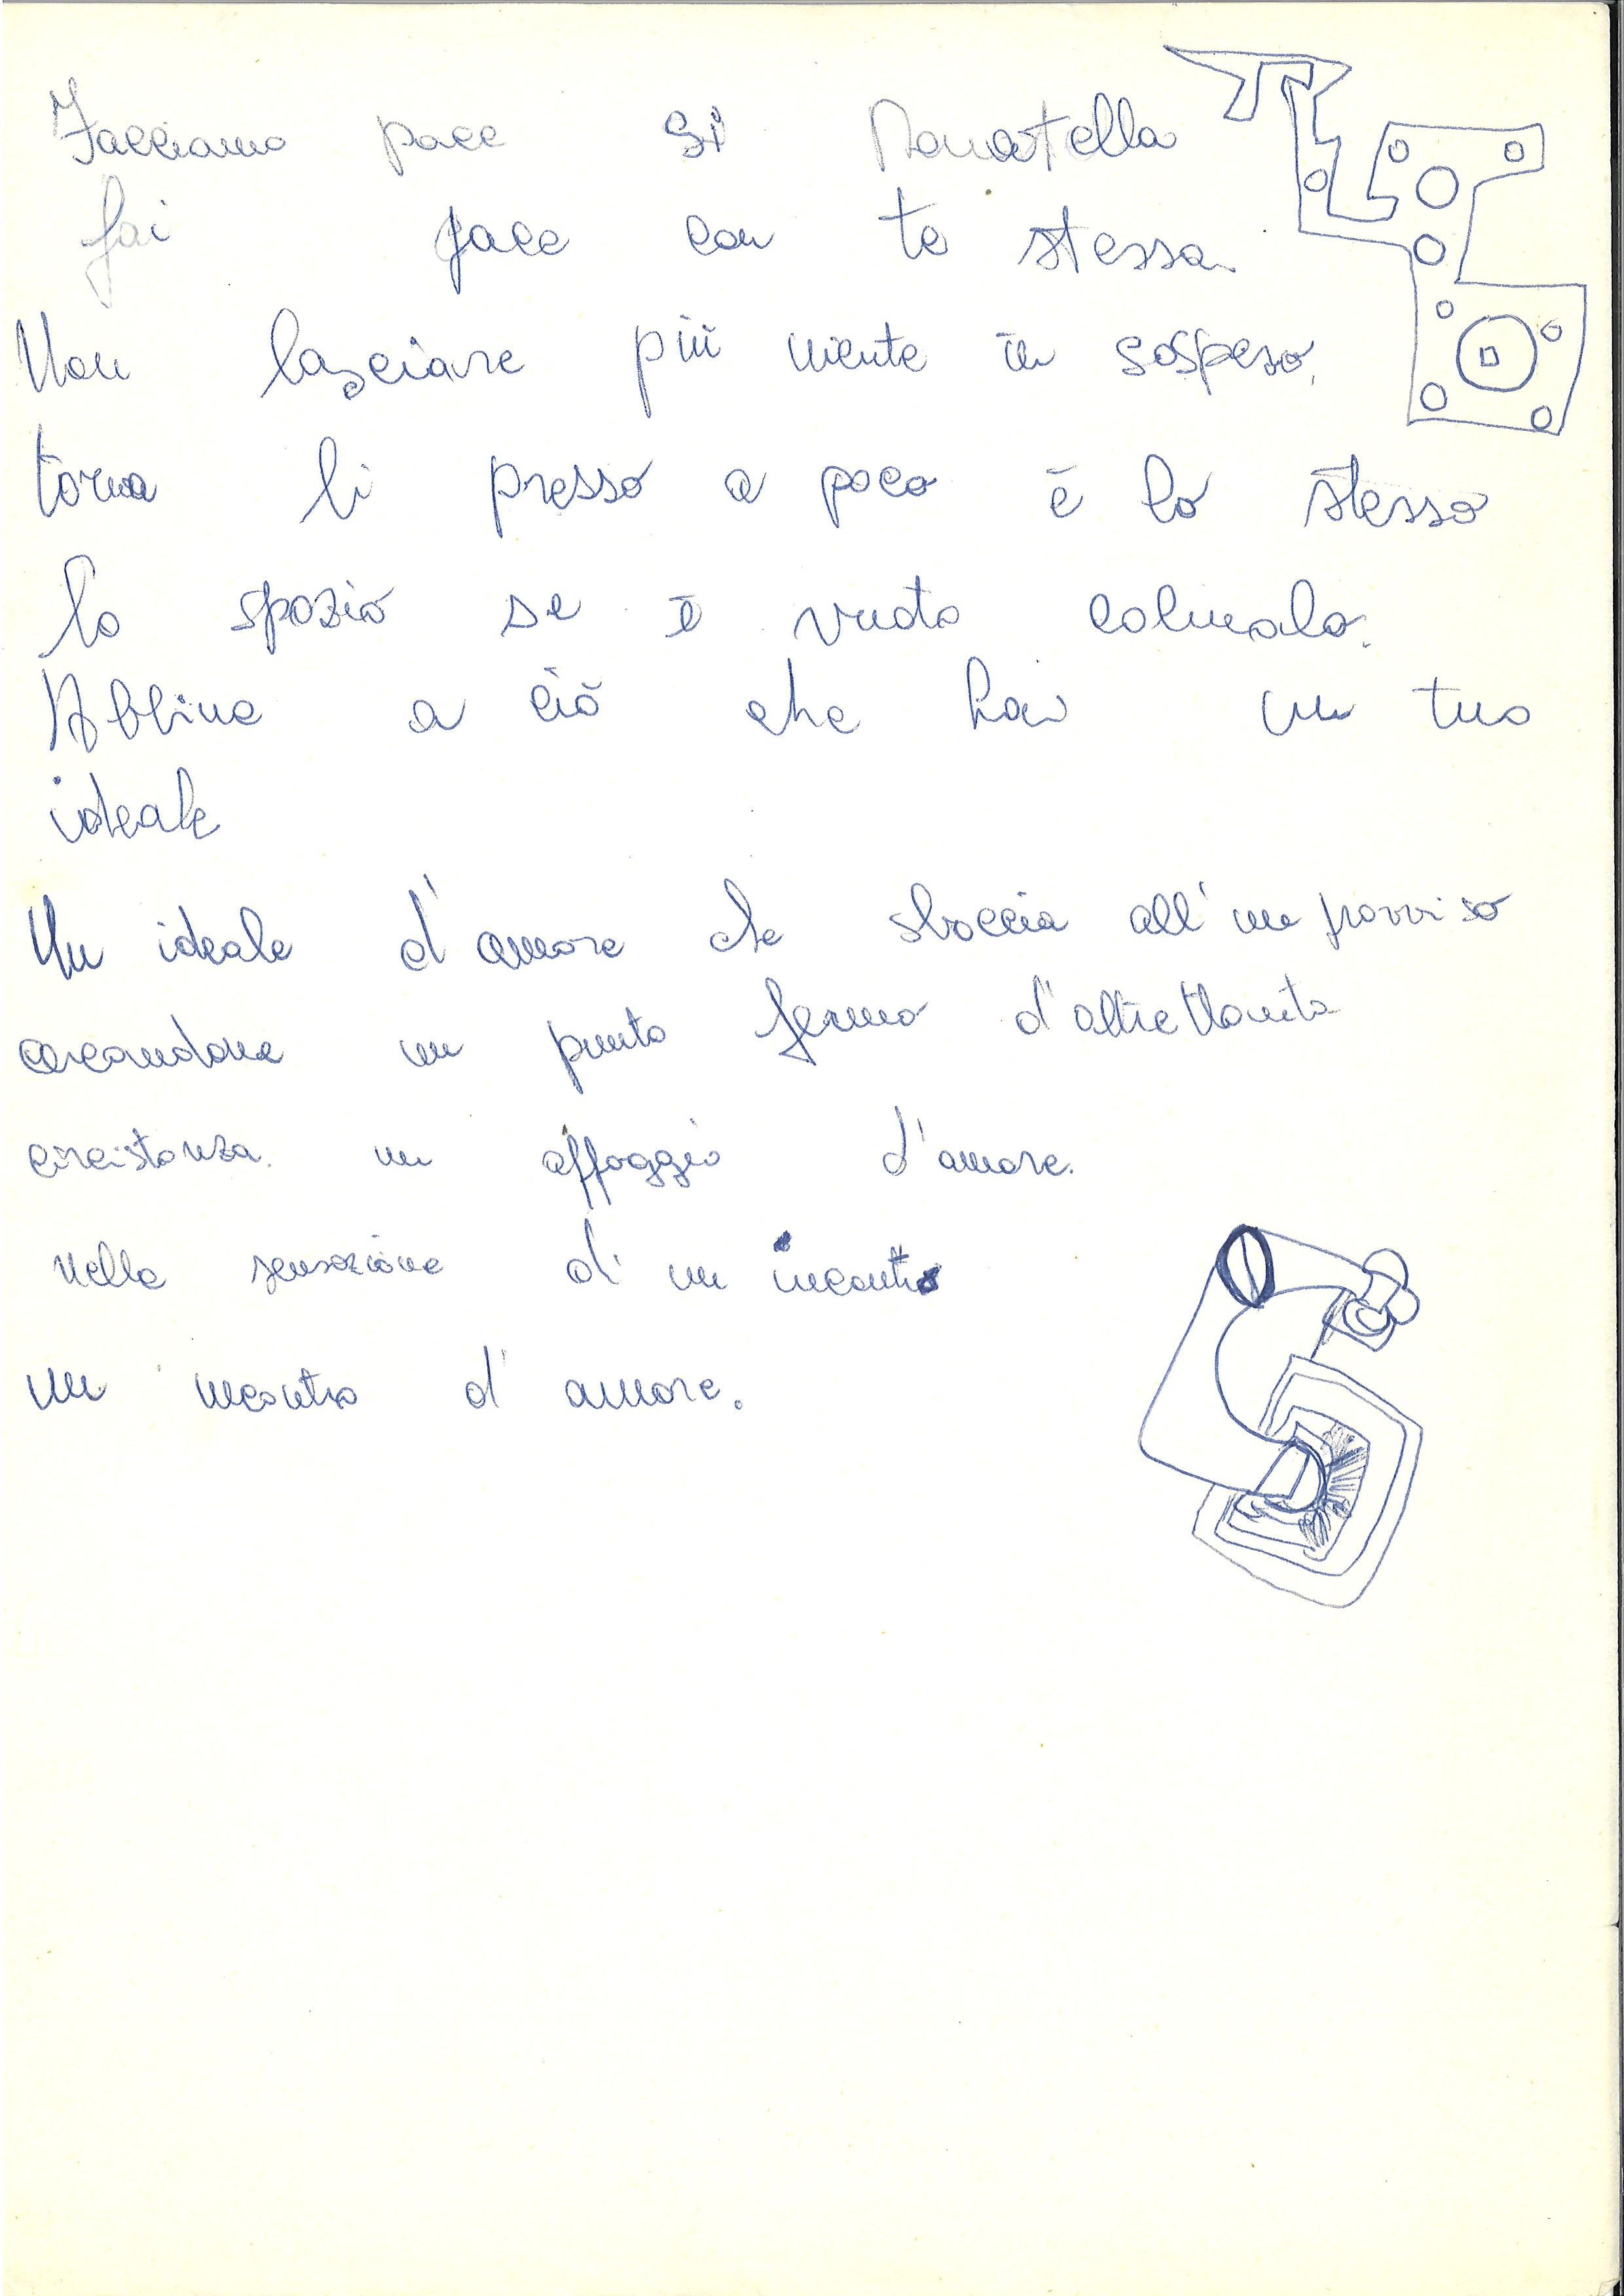 Facciamo pace si Donatella
fai pace con te stessa.
Non lasciare più niente in sospeso,
torna li presso a poco è lo stesso
lo spazio se è vuoto colmalo.
Abbine a ciò che hai un tuo
ideale
Un ideale d'amore che sboccia all'improvviso
cercandone un punto fermo d'altrettanta
circistanza. un appoggio d'amore.
nella sensazione di un incontro
un incontro d'amore.